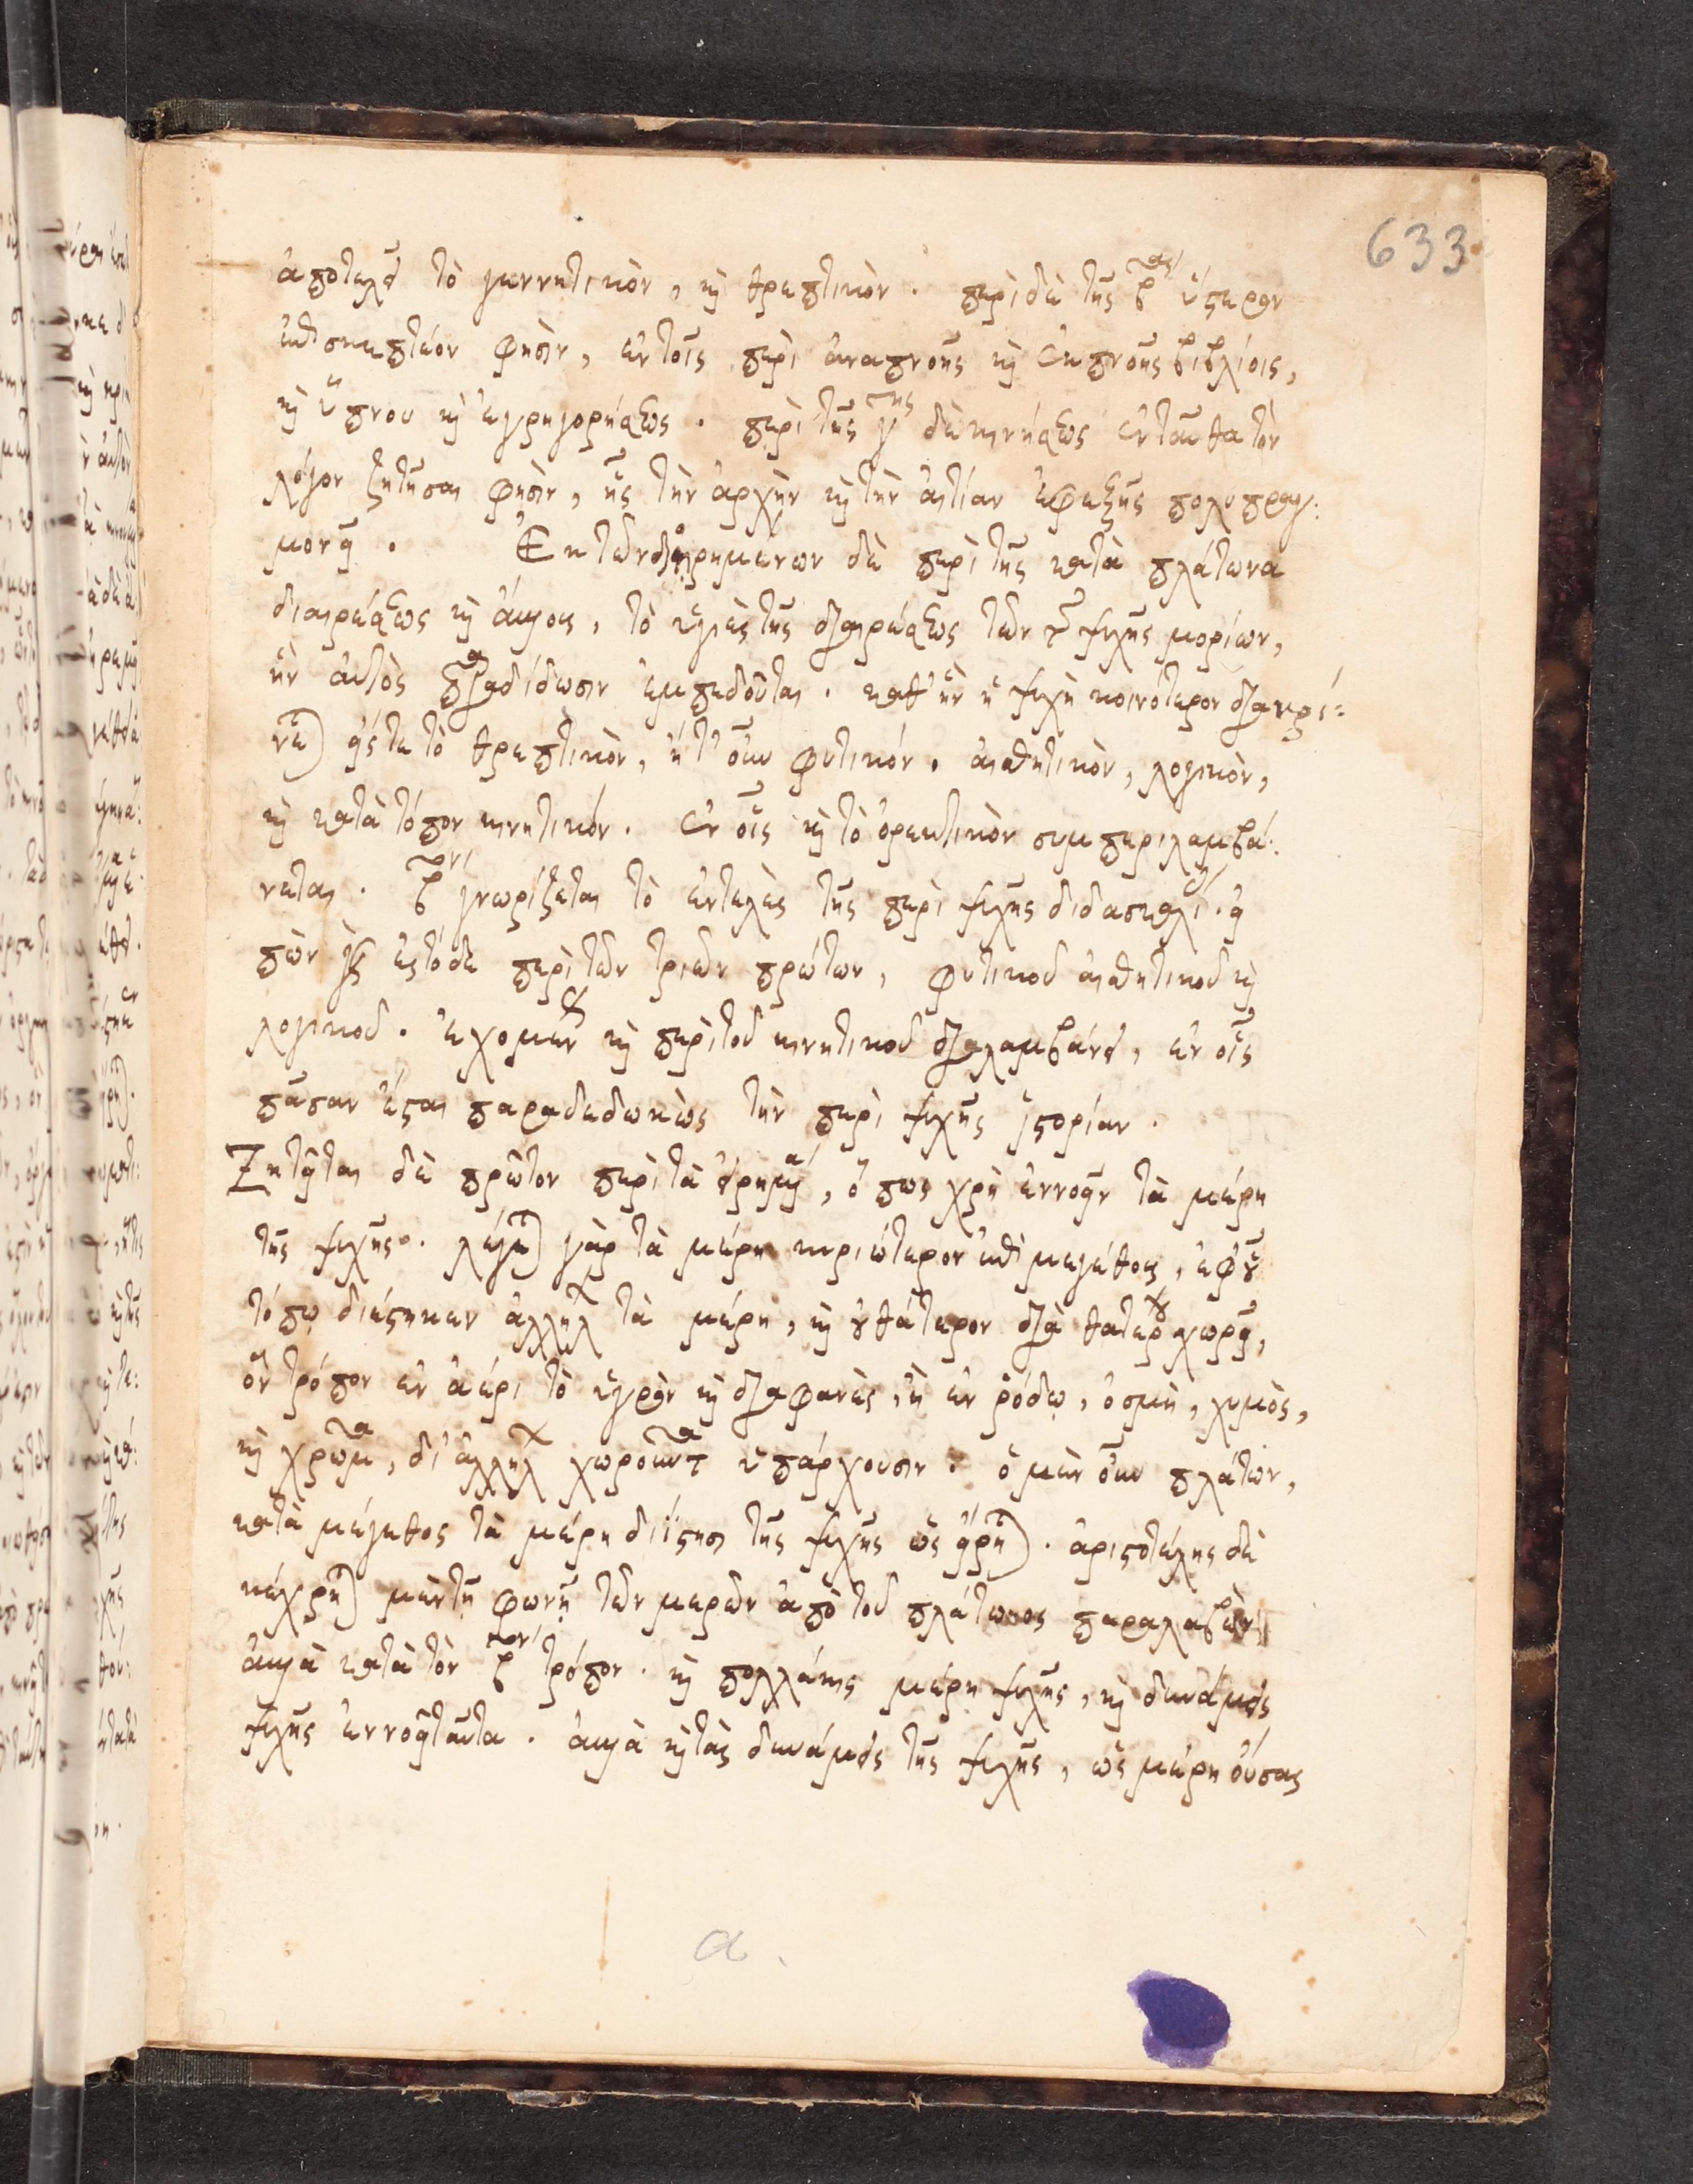 633
ἀποτελεῖ τὸ γεννητικὸν, καὶ θρεπτικὸν. περὶ δὲ τῆς βας ὕστερον
ἐπισκεπτέον φησὶν, ἐν τοῖς περὶ ἀναπνοῆς καὶ ἐκπνοῆς βιβλίοις,
καὶ ὕπνου καὶ ἐγρηγορήσεως. περὶ τῆς γης δὲ κινήσεως ἐνταῦθα τὸν
λόγον ζητῆσαι φησὶν, ἧς τὴν ἀρχὴν καὶ τὴν αἰτίαν ἐφεξῆς πολυπραγ:
μονεῖ. Ἐκ τῶν διῃρημένων δὲ περὶ τῆς κατὰ πλάτωνα
διαιρέσεως καὶ ἄλλους, τὸ ὑγιὲς τῆς διαιρέσεως τῶν τῆς ψυχῆς μορίων,
ἣν αὐτὸς παραδίδωσιν ἐμπεδοῦται. καθ' ἣν ἡ ψυχὴ κοινότερον διακρί:
νεται εἴς τε τὸ θρεπτικὸν, ἤτ' οὖν φυτικόν. αἰσθητικὸν, λογικὸν,
καὶ κατὰ τόπον κινητικόν. ἐν οἷς καὶ τὸ ὀρεκτικὸν συμπεριλαμβά:
νεται. βον γνωρίζεται τὸ ἐντελὲς τῆς περὶ ψυχῆς διδασκαλίας. εἰ
πὼν γὰρ ἐς τόδε περὶ τῶν τριῶν πρώτων, φυτικοῦ αἰσθητικοῦ καὶ
λογικοῦ. ἐχομένως καὶ περὶ τοῦ κινητικοῦ διαλαμβάνει, ἐν οἷς
πᾶσαν ἔσται παραδεδωκὼς τὴν περὶ ψυχῆς ἱστορίαν.
Ζητεῖται δὲ πρῶτον περὶ τὰ εἰρημένα, ὅπως χρὴ ἐννοεῖν τὰ μέρη
τῆς ψυχῆς. λέγεται γὰρ τὰ μέρη κυριώτερον ἐπὶ μεγέθους, ἐφ' οὗ
τόπῳ διέστηκεν ἀλλήλων τὰ μέρη, καὶ οὐ θάτερον διὰ θατέρου χωρεῖ,
ὃν τρόπον ἐν ἀέρι τὸ ὑγρὸν καὶ διαφανὲς, ἢ ἐν ῥόδῳ, ὀσμὴ, χυμὸς,
καὶ χρῶμα, δι' ἀλλήλων χωροῦντα ὑπάρχουσιν. ὁ μὲν οὖν πλάτων,
κατὰ μέγεθος τὰ μέρη διΐστησι τῆς ψυχῆς ὡς εἴρηται. ἀριστοτέλης δὲ
κέχρηται μὲν τῇ φωνῇ τῶν μερῶν ἀπὸ τοῦ πλάτωνος παραλαβὼν
ἀλλὰ κατὰ τὸν βον τρόπον. καὶ πολλάκις μέρη ψυχῆς, καὶ δυνάμεις
ψυχῆς ἐννοεῖ ταῦτα. ἀλλὰ καὶ τὰς δυνάμεις τῆς ψυχῆς, ὡς μέρη οὔσας
a.